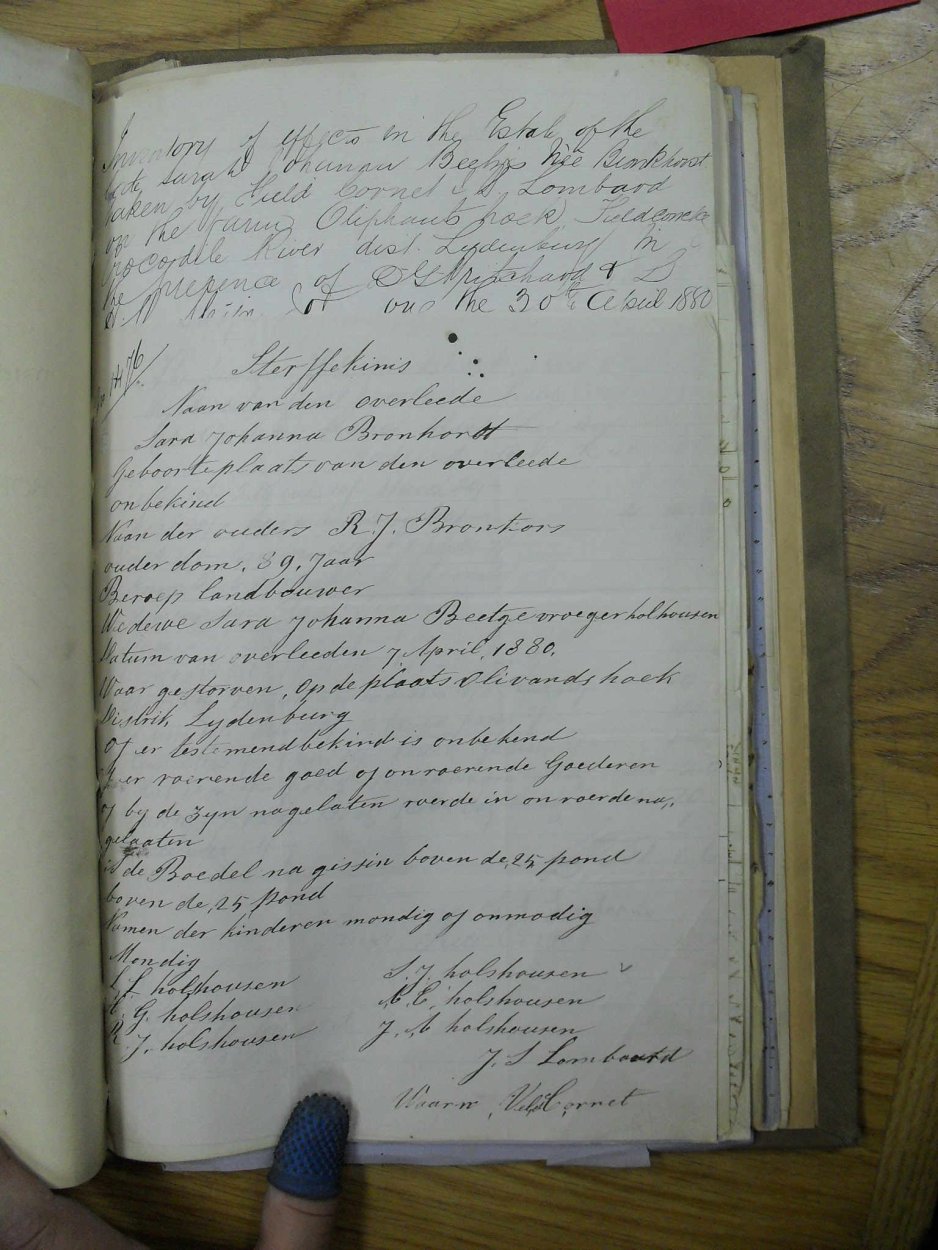 Inventory of effects in the Estate of the
late Sarah Johanna Beetjes Née Bronkhorst
taken by Field Cornet J. S. Lombard
on the farm Oliphants hoek Fieldcornetcy
Crocodile River dist. Lydenburg in
the presence of Pritchard & S
on the 30th April 1880
76/
Sterffekinis
Naan van den overleede
Sara Johanna Bronhordt
Geboorteplaats van den overleede
onbekind
Naan der ouders R. J. Bronkors
ouderdom, 39, Jaar
Beroep landbouwer
Wedewe Sara Johanna Beetge vroeger holhousen
Datum van overleeden 7 April, 1880,
Waar gestorven, Op de plaats Olivands hoek
Distrik Lydenburg
Of er testemend bekind is onbekend
Of er roerende goed of onroerende Goederen
of by de zyn nagelaten roerde in onroerde na,
gelaaten
is de Boedel na gissin boven de, 25 pond
boven de, 25 pond
Namen der kinderen mondig of onmodig
Mondig
holshousen S. J. holshousen
G. holshousen C. holshousen
R. J. holshousen J. holshousen
J. S Lombaard
Waarn Veld Cornet